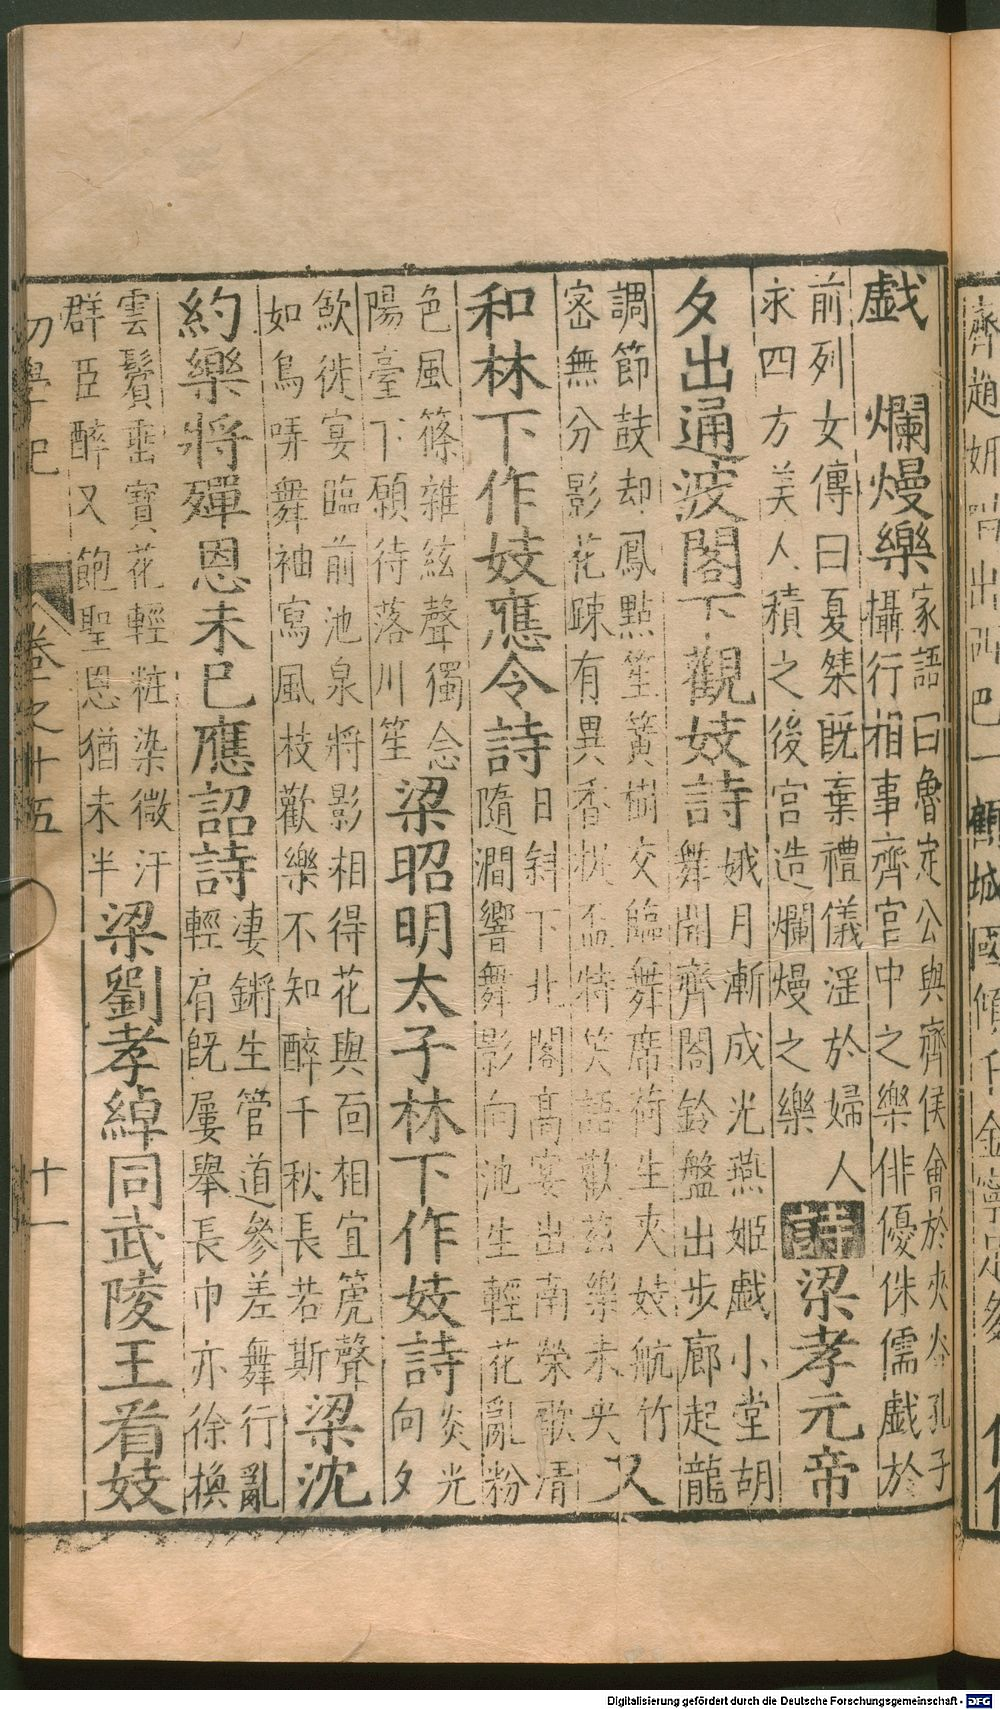 戲　爛熳樂家語曰魯定公與齊侯會於夾谷孔子
攝行相事齊宮中之樂俳優侏儒戲於
前列女傳曰夏桀既棄禮儀淫於婦人
求四方美人積之後宮造爛熳之樂詩梁孝元帝
夕出通波閣下觀妓詩娥月漸成光燕姬戲小堂胡
舞開齊閤鈴盤出步廊起龍
調節鼓却鳳點笙簧樹交臨舞席荷生夾妓航竹
密無分影花踈有異香拭盃特笑語歡茲樂未央又
和林下作妓應令詩日斜下北閣高宴出南榮歌清
隨澗響舞影向池生輕花亂粉
色風篠雜絃聲獨念
陽臺下願待落川笙梁昭明太子林下作妓詩炎光
向夕
歛徙宴臨前池泉將影相得花與面相宜箎聲
如鳥哢舞袖寫風枝歡樂不知醉千秋長若斯梁沈
約樂將殫恩未已應詔詩凄鏘生管道參差舞行亂
輕肩既屢舉長巾亦徐換
雲鬢垂寶花輕粧染微汗
群臣醉又飽聖恩猶未半梁劉孝綽同武陵王看妓
初學記
卷之十五
十一
齊趙妍
出
巴一顧城國傾
千金寧
Digitalisierung gefördert durch die Deutsche Forschungsgemeinschaft - DFG